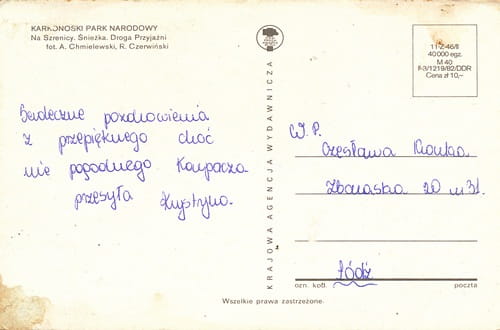 KARKONOSKI PARK NARODOWY
Na Szrenicy. Śnieżka. Droga Przyjaźni
fot. A. Chmielewski, R. Czerwiński
11-2-46/II
40000 egz.
M 40
F-3/1219/82/DDR
Cena zł 10,–
KRAJOWA AGENCJA WYDAWNICZA
Serdeczne pozdrowienia
z przepięknego choć
nie pogodnego Karpacza
przesyła Krystyna.
W.P.
Czesława
Zbaraska 20 m 31.
Łódź
ozn. kodl.
poczta
Wszelkie prawa zastrzeżone.